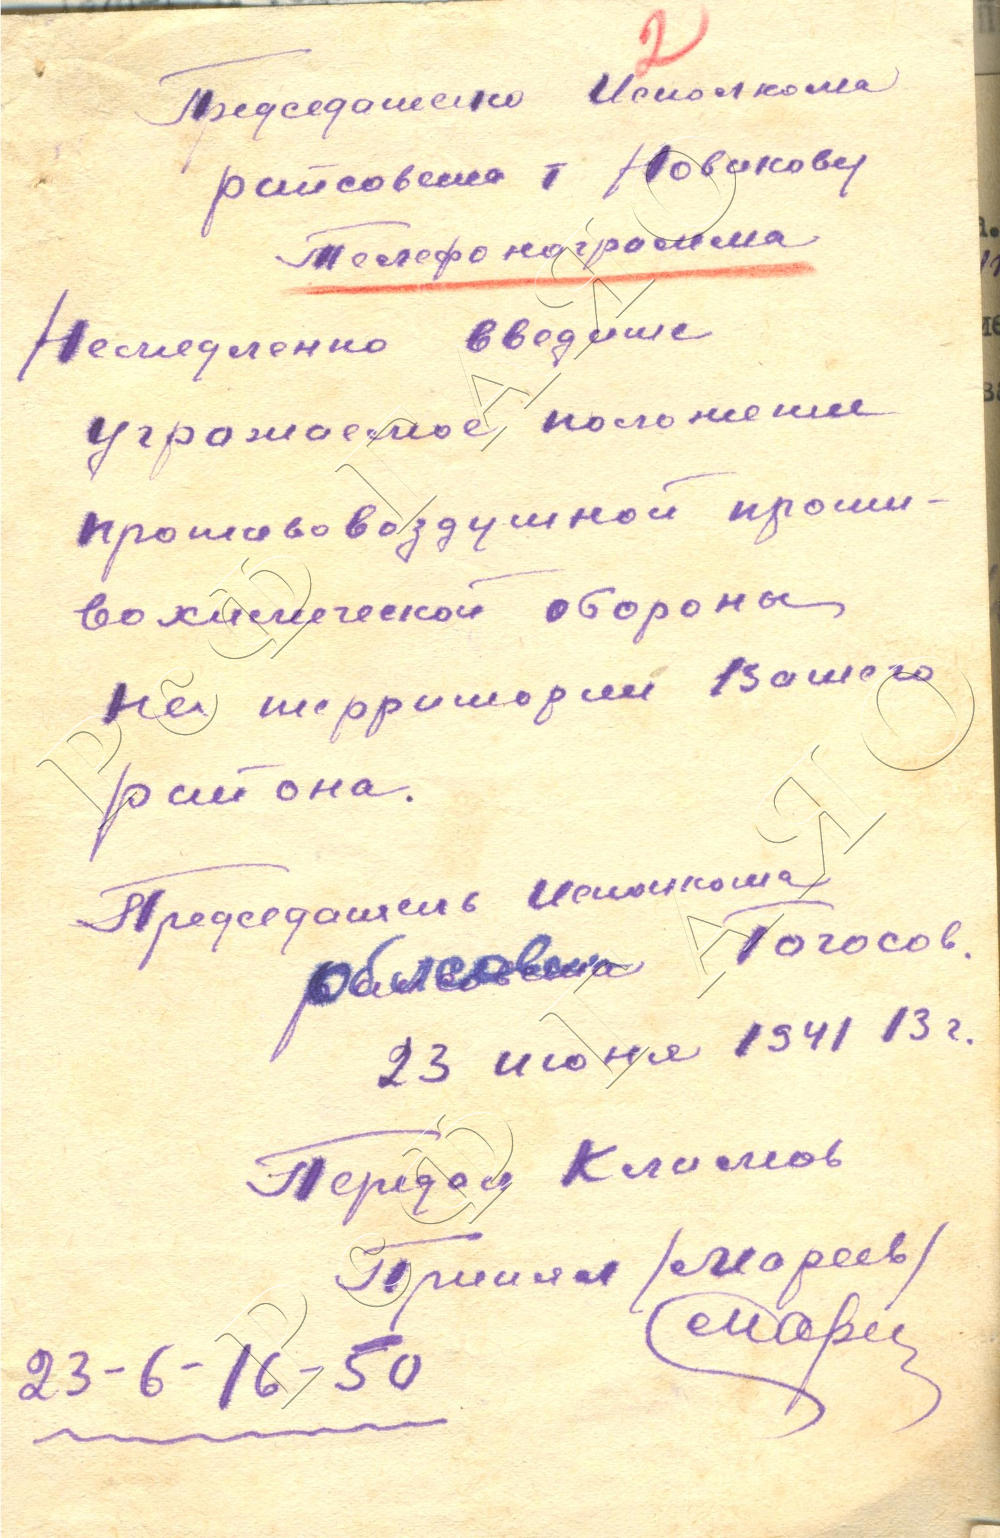 2
Председателю Исполкома
райсовета т Новикову
Телефонограмма
Немедленно введите
угрожаемое положение
противовоздушной проти-
вохимической обороны
на территории Вашего
района.
Председатель Исполкома
облсовета Гогосов.
23 июня 1941 13 г.
Передал Климов
Принял /Мареев/
23-6-16-50
РбФ ГАЯО
РбФ ГАЯО